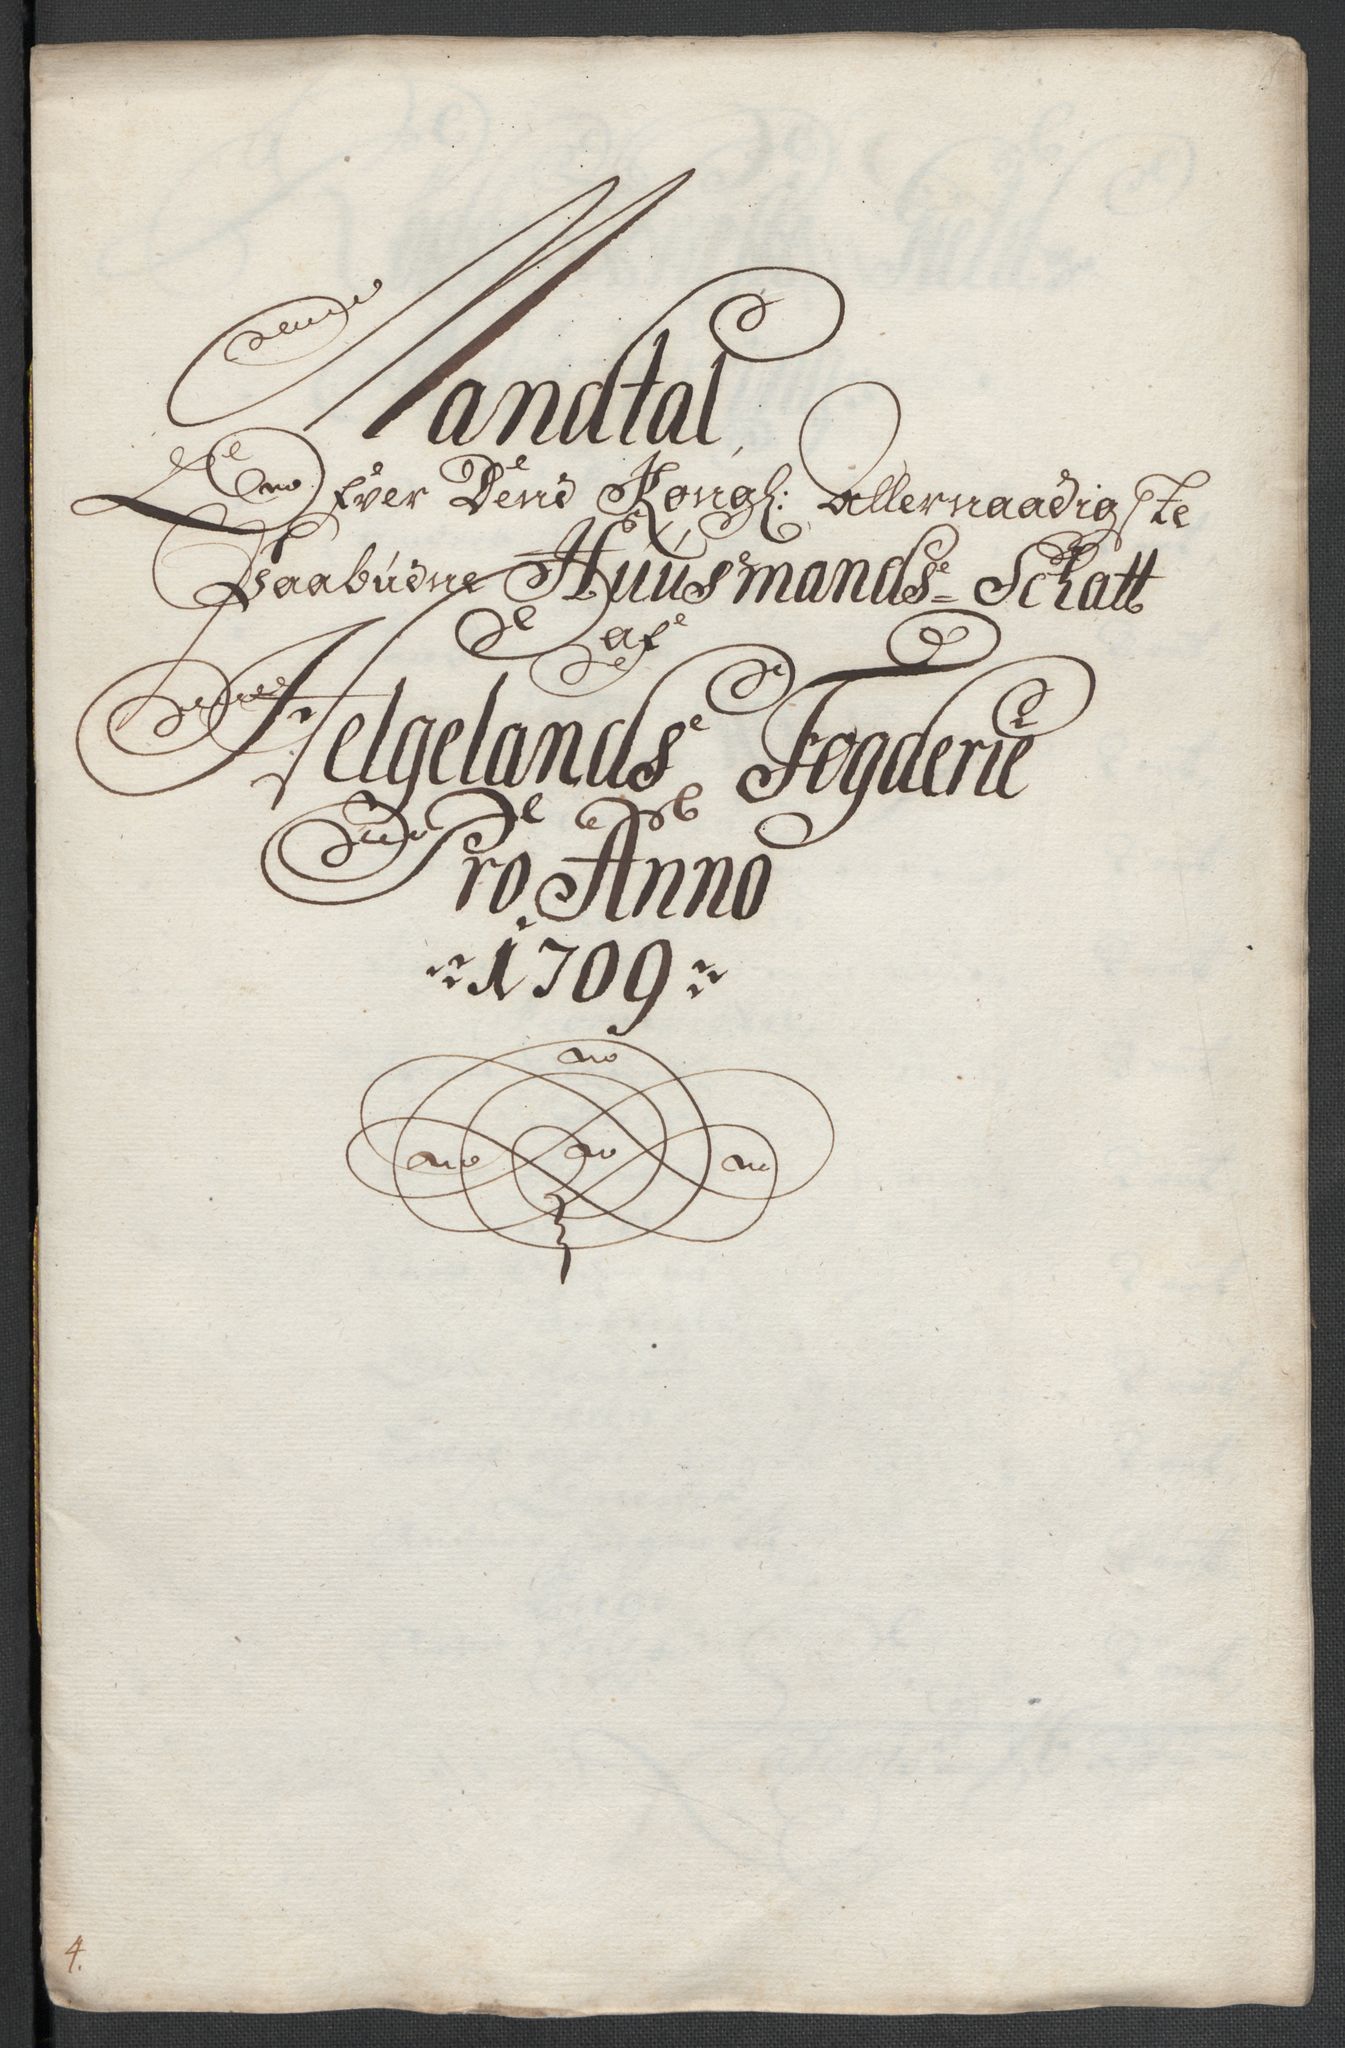 Mandtal
Ofver Dend Kongl: Allernaadigste
Paabudne Huusmands- Schatt
af
Helgelands Fogderie
Pro Anno
1709
4.